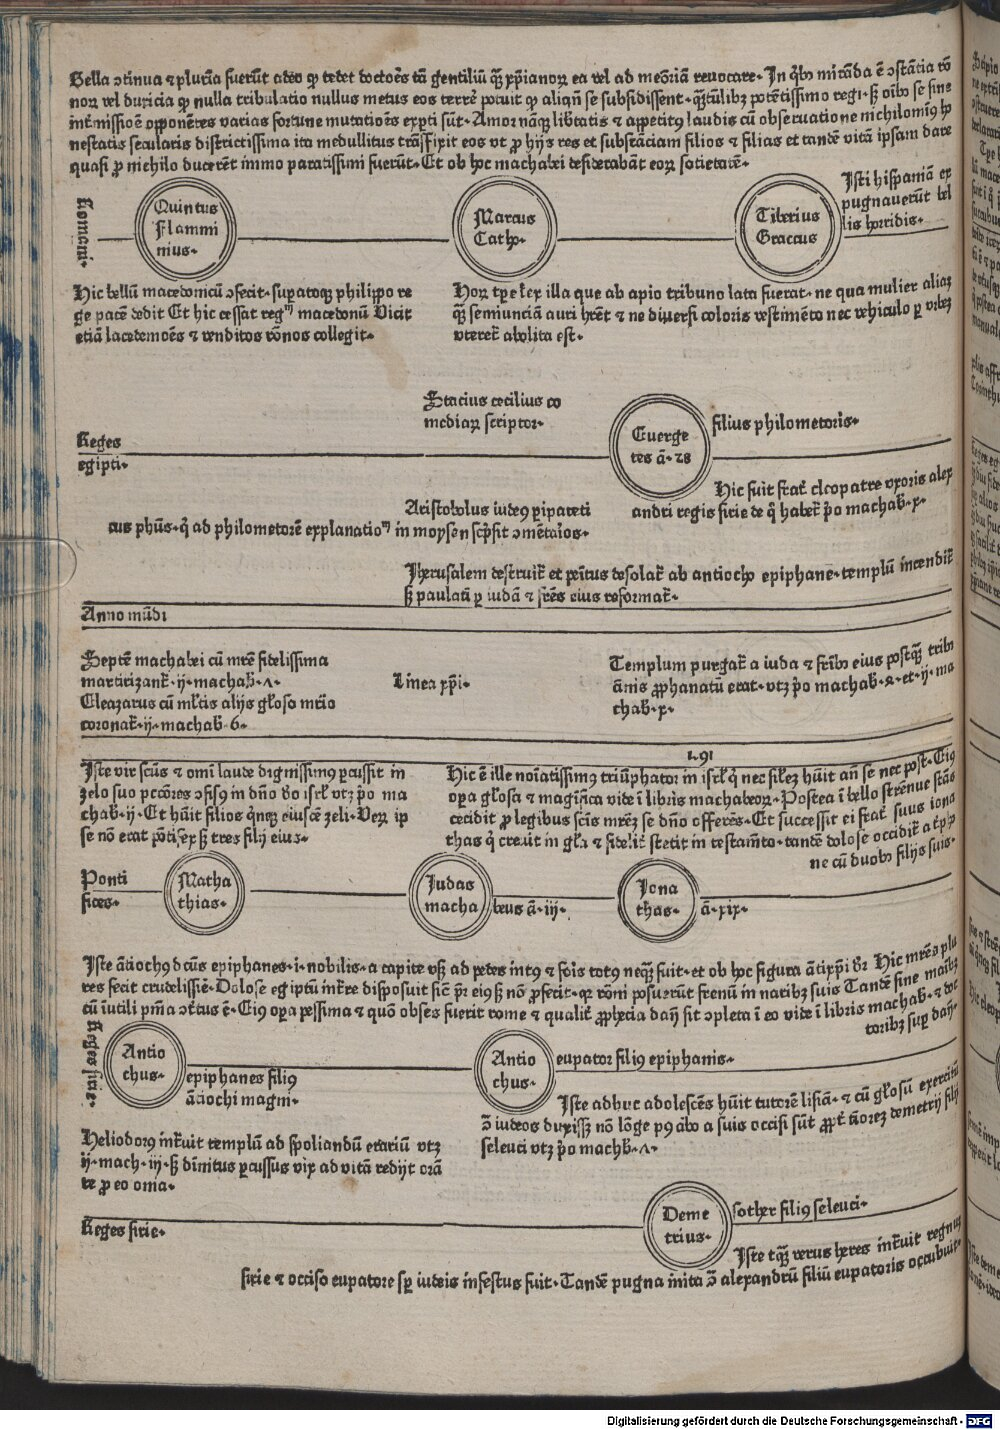 Bella ɔtinua ⁊ plurīa fuerūt adeo ꝙ tedet doctoēs tā gentiliū qꝫ xp̄ianoꝝ ea vel ad meōriā reuocare· In q̄bꝰ mirāda ē ɔstātia rō
noꝝ vel duricia ꝙ nulla tribulatio nullus metus eos terrē potuit ꝙ aliqn̄ se subsidissent· qꝫtūlibꝫ potētissimo regi· sꝫ oībꝰ se sine
int̄missiōe opponētes varias fortune mutatioēs expti sūt· Amor nāqꝫ libertatis ⁊ appetitꝰ laudis cū obseruatione nichilominꝰ ho
nestatis secularis districtissima ita medullitus trāsfixit eos vt ꝓ hijs res et substāciam filios ⁊ filias et tandē vitā ipsam dare
quasi ꝓ nichilo ducerēt immo paratissimi fuerūt· Et ob hoc machabei desiderabāt eoꝝ societatē·
Isti hispaniā ex
pugnauerūt bel
lis horridis·
Romani·
Quintus
Flammi
nius·
Marcus
Catho·
Tiberius
Graccus
Hic bellū macedonicū ɔfecit· suꝑatoqꝫ philippo re
ge pacē dedit Et hic cessat regᵐ macedonū Vicit
etiā lacedemoēs ⁊ venditos rōnos collegit·
Hoꝝ tp̄e lex illa que ab apio tribuno lata fuerat· ne qua mulier aliaꝝ
qꝫ semiunciā auri hrēt ⁊ ne diuersi coloris vestimēto nec vehiculo ꝑ vrbeꝫ
vteret̄ abolita est·
Stacius cecilius co
mediaꝝ scriptor·
Reges
egipti·
Euerge
tes ā· 28
filius philometoris·
Hic fuit frat̄ cleopatre vxoris alex
andri regis sirie de q̄ habet̄ pº machab· x·
Aristobolus iudeꝰ ꝑipateti
cus phūs· q̄ ad philometorē explanatioᵐ in moysen scp̄sit ɔmētarios·
Jherusalem destruit̄ et penitus desolat̄ ab antiocho epiphane· templū incendit̄
sꝫ paulatī ꝑ iudā ⁊ frēs eius reformat̄·
Anno mūdi
Septē machabei cū mrē fidelissima
martirizant̄· ij· machab· ʌ·
Eleazarus cū mltis alijs glºoso mrīo
coronat̄· ij· machab· 6·
Linea xp̄i·
Templum purgat̄ a iuda ⁊ frībꝰ eius postqꝫ tribꝰ
ānis ꝓphanatū erat· vtꝫ pº machab· 4· et· ij· ma
chab· x·
Iste vir scūs ⁊ omī laude dignissimꝰ ꝑcussit in
zelo suo pctōres ɔfisꝰ in dn̄o deo isrl̄ vtꝫ pº ma
chab· ij· Et hūit filios qnqꝫ eiuscē zeli· Veꝝ ip
se nō erat pōti fex sꝫ tres filij eiuꝫ·
1·91
Hic ē ille noīatissimꝰ triūphator in isrl̄ q̄ nec sil̄eꝫ hūit an̄ se nec post· Eiꝰ
oꝑa glºosa ⁊ magīfica vide ī librīs machabeoꝝ· Postea ī bello strēnue stās
cecidit ꝓ legibus scīs mrēꝫ se dn̄o offerēs· Et successit ei frat̄ suus iona
thas q̄ creuit in gl̄a ⁊ fidelit̄ stetit in testamēto· tandē dolose occidit̄ a tp̄hō
ne cū duobꝰ filijs suis·
Ponti
fices·
Matha
thias·
Judas
macha
beus ā· iij·
Jona
thas·
ā· xix·
Iste āciochꝰ dcūs epiphanes· i· nobilis· a capite vsꝫ ad pedes intꝰ ⁊ foīs totꝰ neqꝫ fuit· et ob hoc figura ātixp̄i dr̄· Hic mrēs plu
res fecit crudelissīe· Dolose egiptū int̄re disposuit sicē pr̄ eiꝰ sꝫ nō ꝓfecit· qꝛ rōni posuerūt frenū in naribꝫ suis Tandē sine manibꝫ
cū īutili pn̄ia ɔt̄tus ē· Eiꝰ oꝑa pessima ⁊ quō obses fuerit rome ⁊ qualit̄ ꝓphecia dan̄ sit ɔpleta ī eo vide ī libris machab· ⁊ doc
toribꝫ suꝑ dan̄·
Reges sirie·
Antio
chus·
epiphanes filiꝰ
āciochi magni·
Antio
chus·
eupator filiꝰ epiphanis·
Iste adhuc adolescēs hūit tutorē lisiā· ⁊ cū glºosū exercitū
ɔ̄ iudeos duxissꝫ nō lōge pꝰ ābo a suis occisi sūt ꝓpt̄ t̄norez demetrij filij
seleuci vtꝫ pº machb· ʌ·
Heliodorꝰ int̄uit templū ad spoliandū erariū vtꝫ
ij· mach· iij· sꝫ diuītus ꝑcussus vix ad vitā redijt orā
te ꝓ eo onia·
Reges sirie·
Deme
trius·
sother filiꝰ seleuci·
Iste tqꝫ verus heres int̄uit regnuꝫ
sirie ⁊ occiso eupatore sp̄ iudeis infestus fuit· Tandē pugna inita ɔ̄ alexandrū filiū eupatoris occubuit·
Digitalisierung gefördert durch die Deutsche Forschungsgemeinschaft - DFG